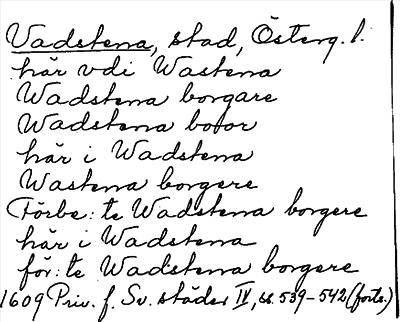 Vadstena, stad, Österg. l.
här vdi Wastena
Wadstena borgare
Wadstena boror
här i Wadstena
Wastena borgere
Förbe: te Wadstena borgere
här i Wadstena
för: te Wadstena borgere
1609 Priv. f. Sv. städer IV, ss. 539-542 (forts.)